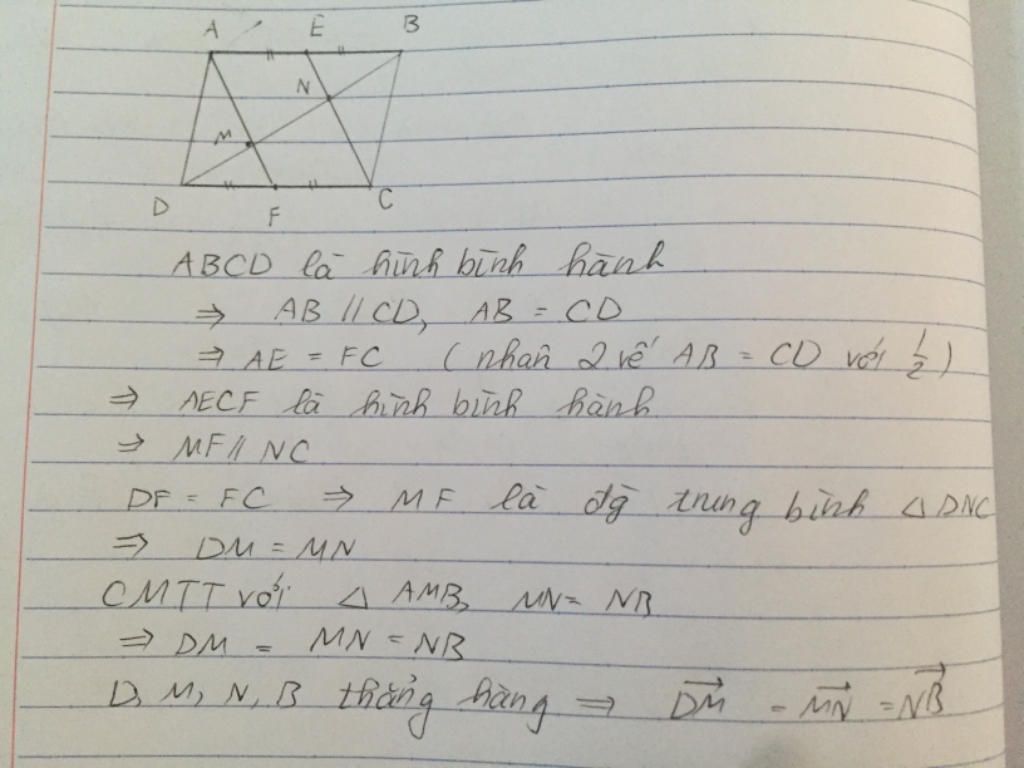 A E B
N
M
D F C
ABCD là hình bình hành
⇒ AB // CD, AB = CD
⇒ AE = FC (nhân 2 vế AB = CD với 1/2)
⇒ AECF là hình bình hành
⇒ MF // NC
DF = FC ⇒ MF là đg trung bình △ DNC
⇒ DM = MN
CMTT với △ AMB, MN = NB
⇒ DM = MN = NB
D, M, N, B thẳng hàng ⇒ \overrightarrow{DM} = \overrightarrow{MN} = \overrightarrow{NB}